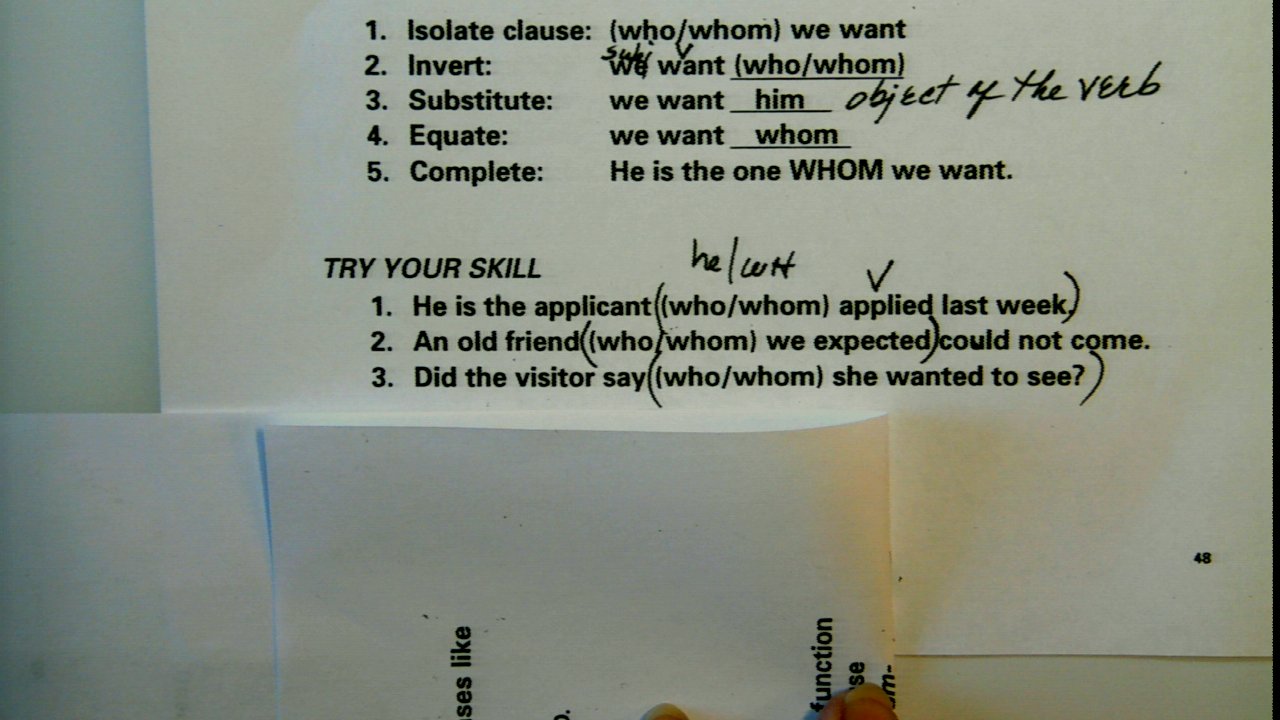 1. Isolate clause: (who/whom) we want
subj v
2. Invert: we want (who/whom)
3. Substitute: we want him object of the verb
4. Equate: we want whom
5. Complete: He is the one WHOM we want.
he/ V
TRY YOUR SKILL
1. He is the applicant ((who/whom) applied last week.)
2. An old friend ((who/whom) we expected) could not come.
3. Did the visitor say ((who/whom) she wanted to see?)
48
ses like
function